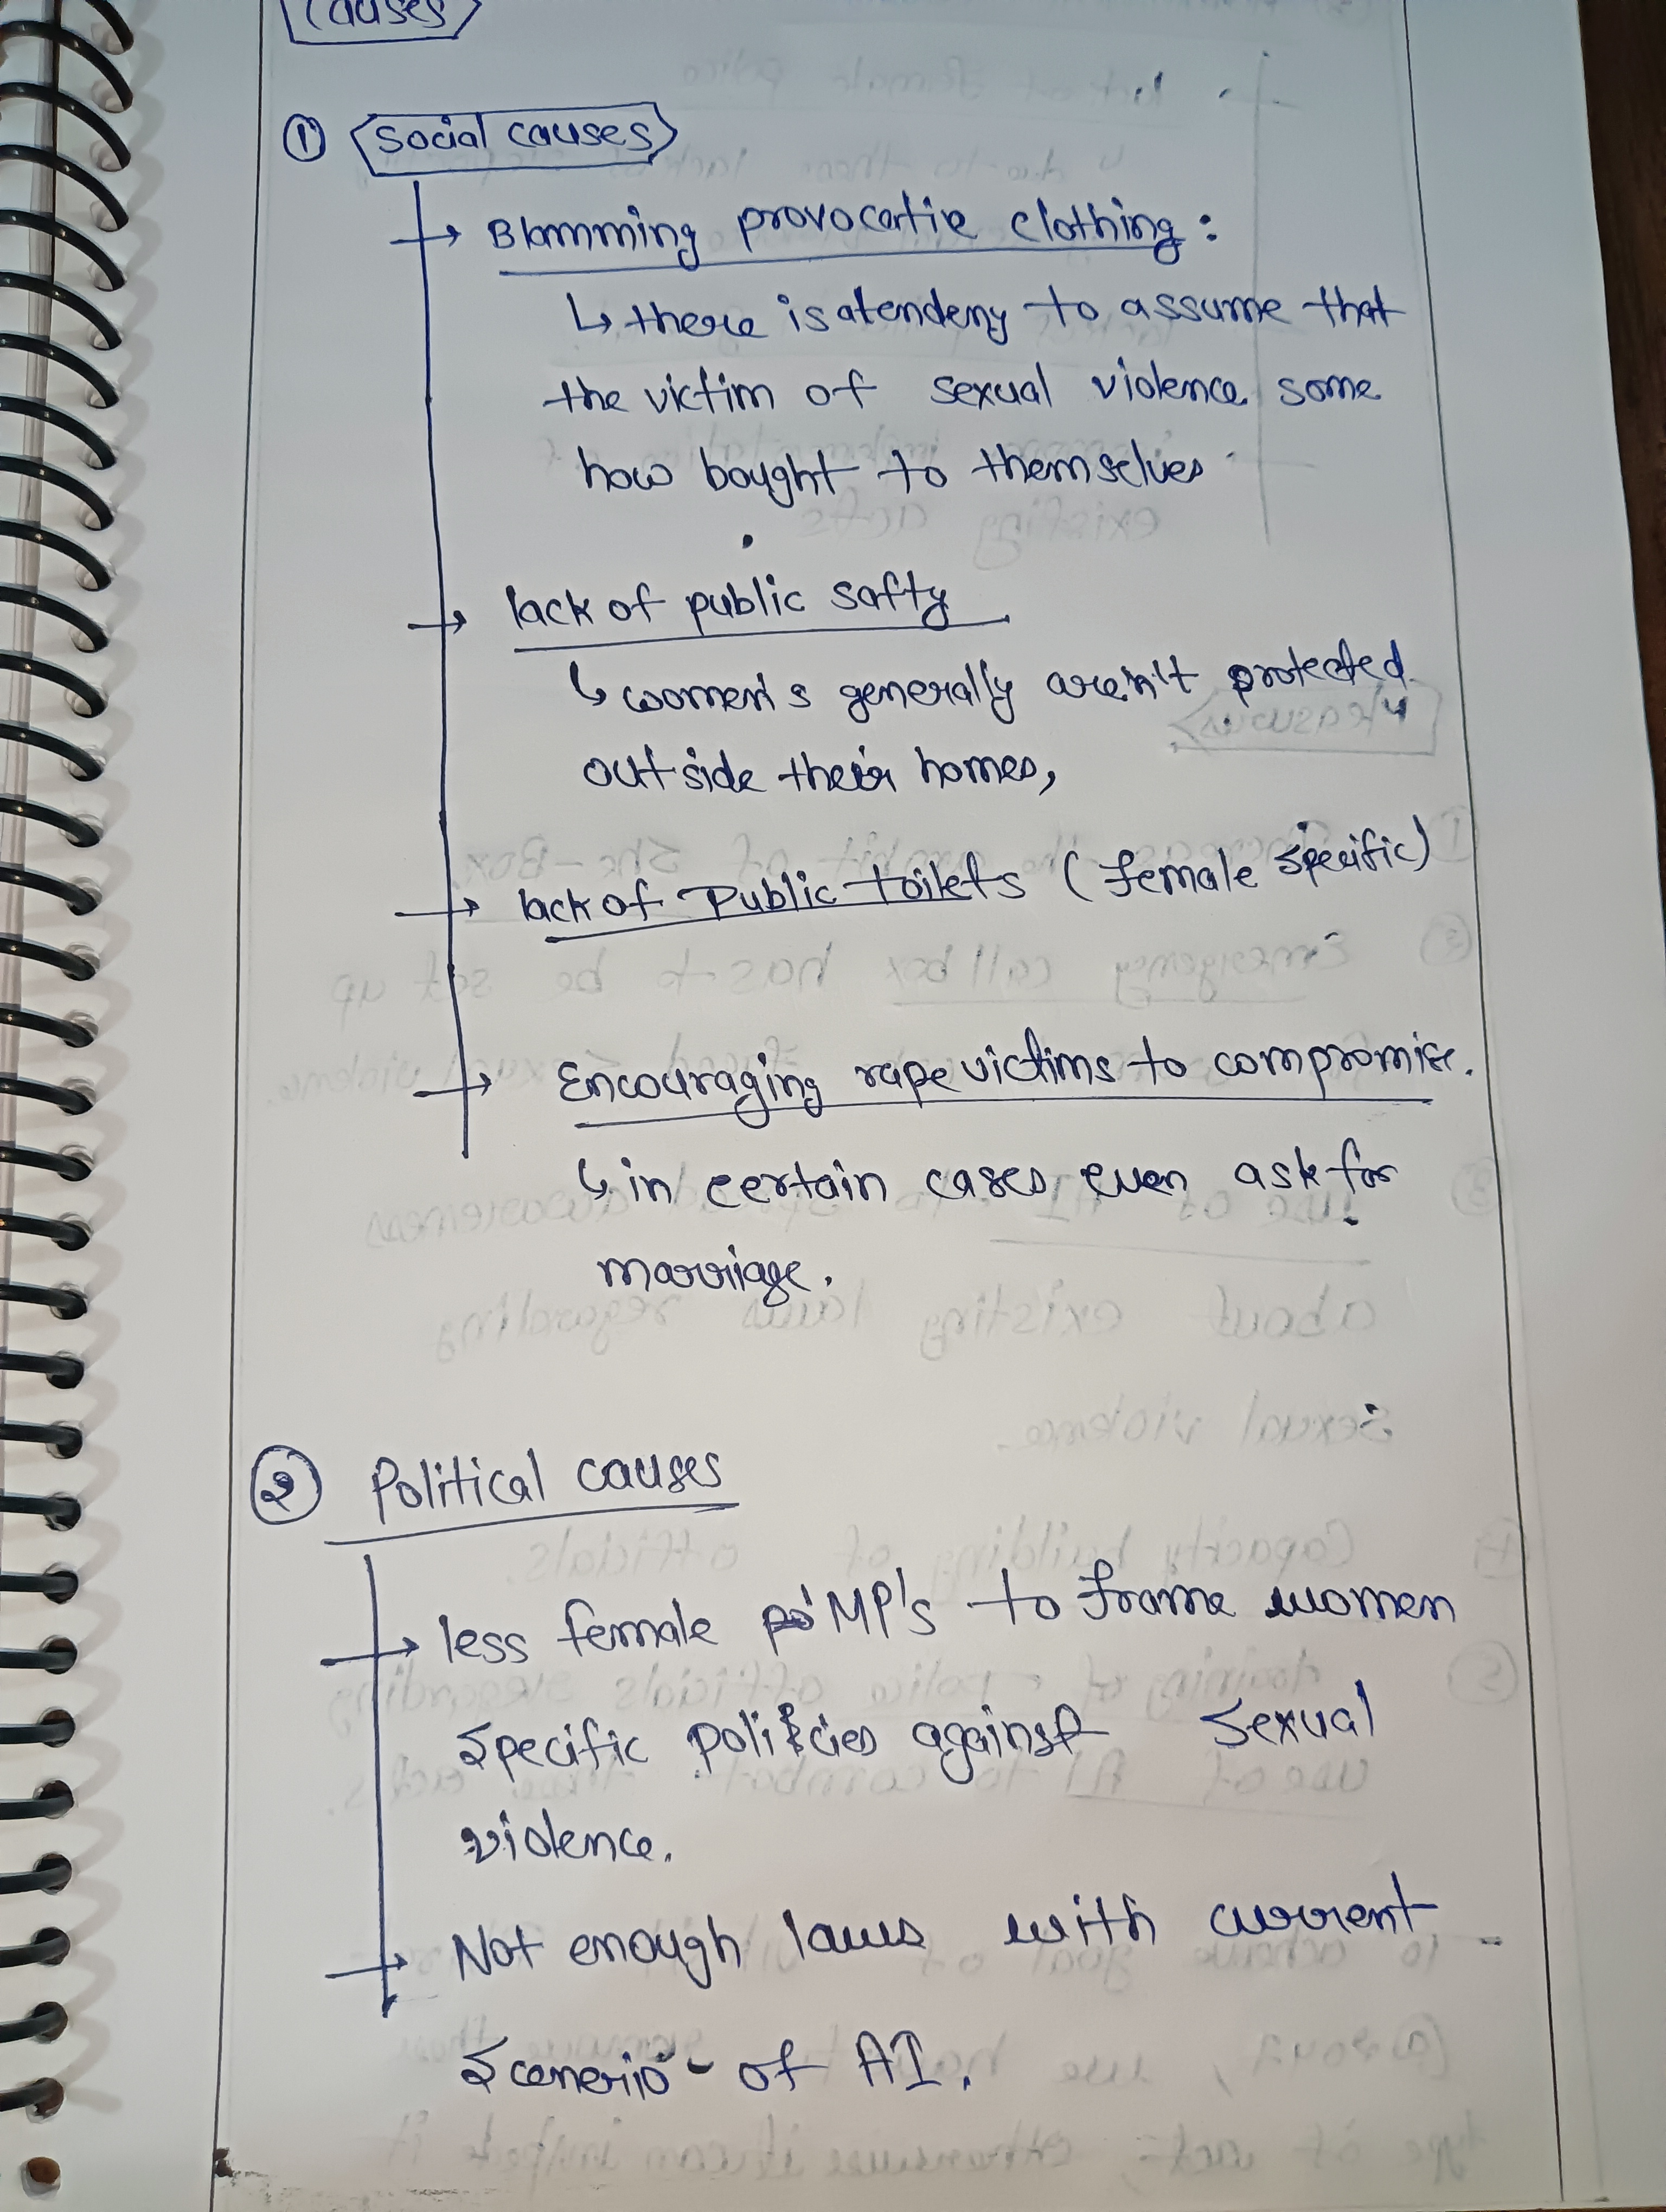 Causes
① Social causes
→ Blamming provocative clothing :
↳ there is a tendeny to assume that
the victim of sexual violence some
how bought to themselves
→ lack of public safty
↳ women's generally aren't protected
outside their homes,
→ lack of Public toilets (female specific)
→ Encouraging rape victims to compromise.
↳ in certain cases even ask for
marriage.
② Political causes
→ less female MP's to frame women
specific policies against sexual
violence.
→ Not enough laws with current
scenerio - of AI.